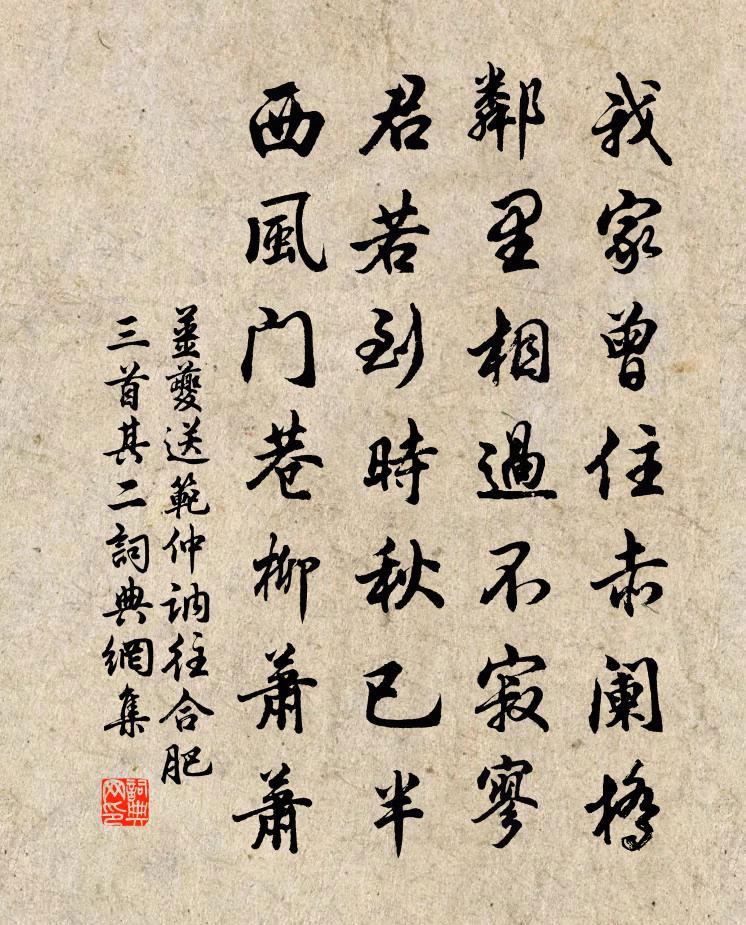 我家曾住赤阑橋
鄰里相過不寂寥
君若到時秋已半
西風门巷柳蕭蕭
薑夔送範仲讷往合肥
三首其二詞典網集
詞典网印